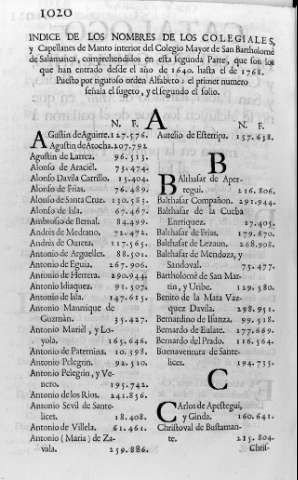 1020
INDICE DE LOS NOMBRES DE LOS COLEGIALES,
y Capellanes de Manto interior del Colegio Mayor de San Bartholomè
de Salamanca, comprehendidos en esta segunda Parte, que son los
que han entrado desde el año de 1640. hasta el de 1768.
Puesto por riguroso orden Alfabeto: el primer numero
señala el sugeto, y el segundo el folio.
A
N. F.
AGustin de Aguirre. 127.576.
Agustin de Atocha. 207.792
Agustin de Larrea. 96.513.
Alonso de Araciel. 73.474.
Alonso Davila Carrillo. 15.404.
Alonso de Frias. 76.489.
Alonso de Santa Cruz. 130.583.
Alonso de Isla. 67.467.
Ambrosio de Bernal. 84.499.
Andrès de Medrano. 72.472.
Andrès de Oarrea. 117.565.
Antonio de Arguelles. 88.501.
Antonio de Eguia. 267.906.
Antonio de Herrera. 290.944.
Antonio Idiaquez. 91.507.
Antonio de Isla. 147.615.
Antonio Manrrique de
Guzmán. 35.427.
Antonio Mariel, y Lo-
yola. 165.646.
Antonio de Paternina. 10.398.
Antonio Pelegrin. 94.510.
Antonio Pelegrin, y Ve-
nero. 195.742.
Antonio de los Rios. 241.856.
Antonio Sevil de Sante-
lices. 18.408.
Antonio de Villela. 61.461.
Antonio (Maria) de Za-
vala. 259.886.
N. F.
Aurelio de Esterripa. 157.638.
B
BAlthasar de Aper-
regui. 216.806.
Balthasar Compañon. 291.944.
Balthasar de la Cueba
Enrriquez. 27.405.
Balthasar de Frias. 179.670.
Balthasar de Lezaun. 268.908.
Balthasar de Mendoza, y
Sandoval. 75.477.
Bartholomè de San Mar-
tin, y Uribe. 129.580.
Benito de la Mata Vaz-
quez Davila. 298.951.
Bernardino de Isunza. 99.518.
Bernardo de Eulate. 277.689.
Bernardo del Prado. 116.564.
Buenaventura de Sante-
lices. 194.735.
C
CArlos de Apestegui,
y Ginda. 160.641.
Christoval de Bustaman-
te. 215.804.
Chris-